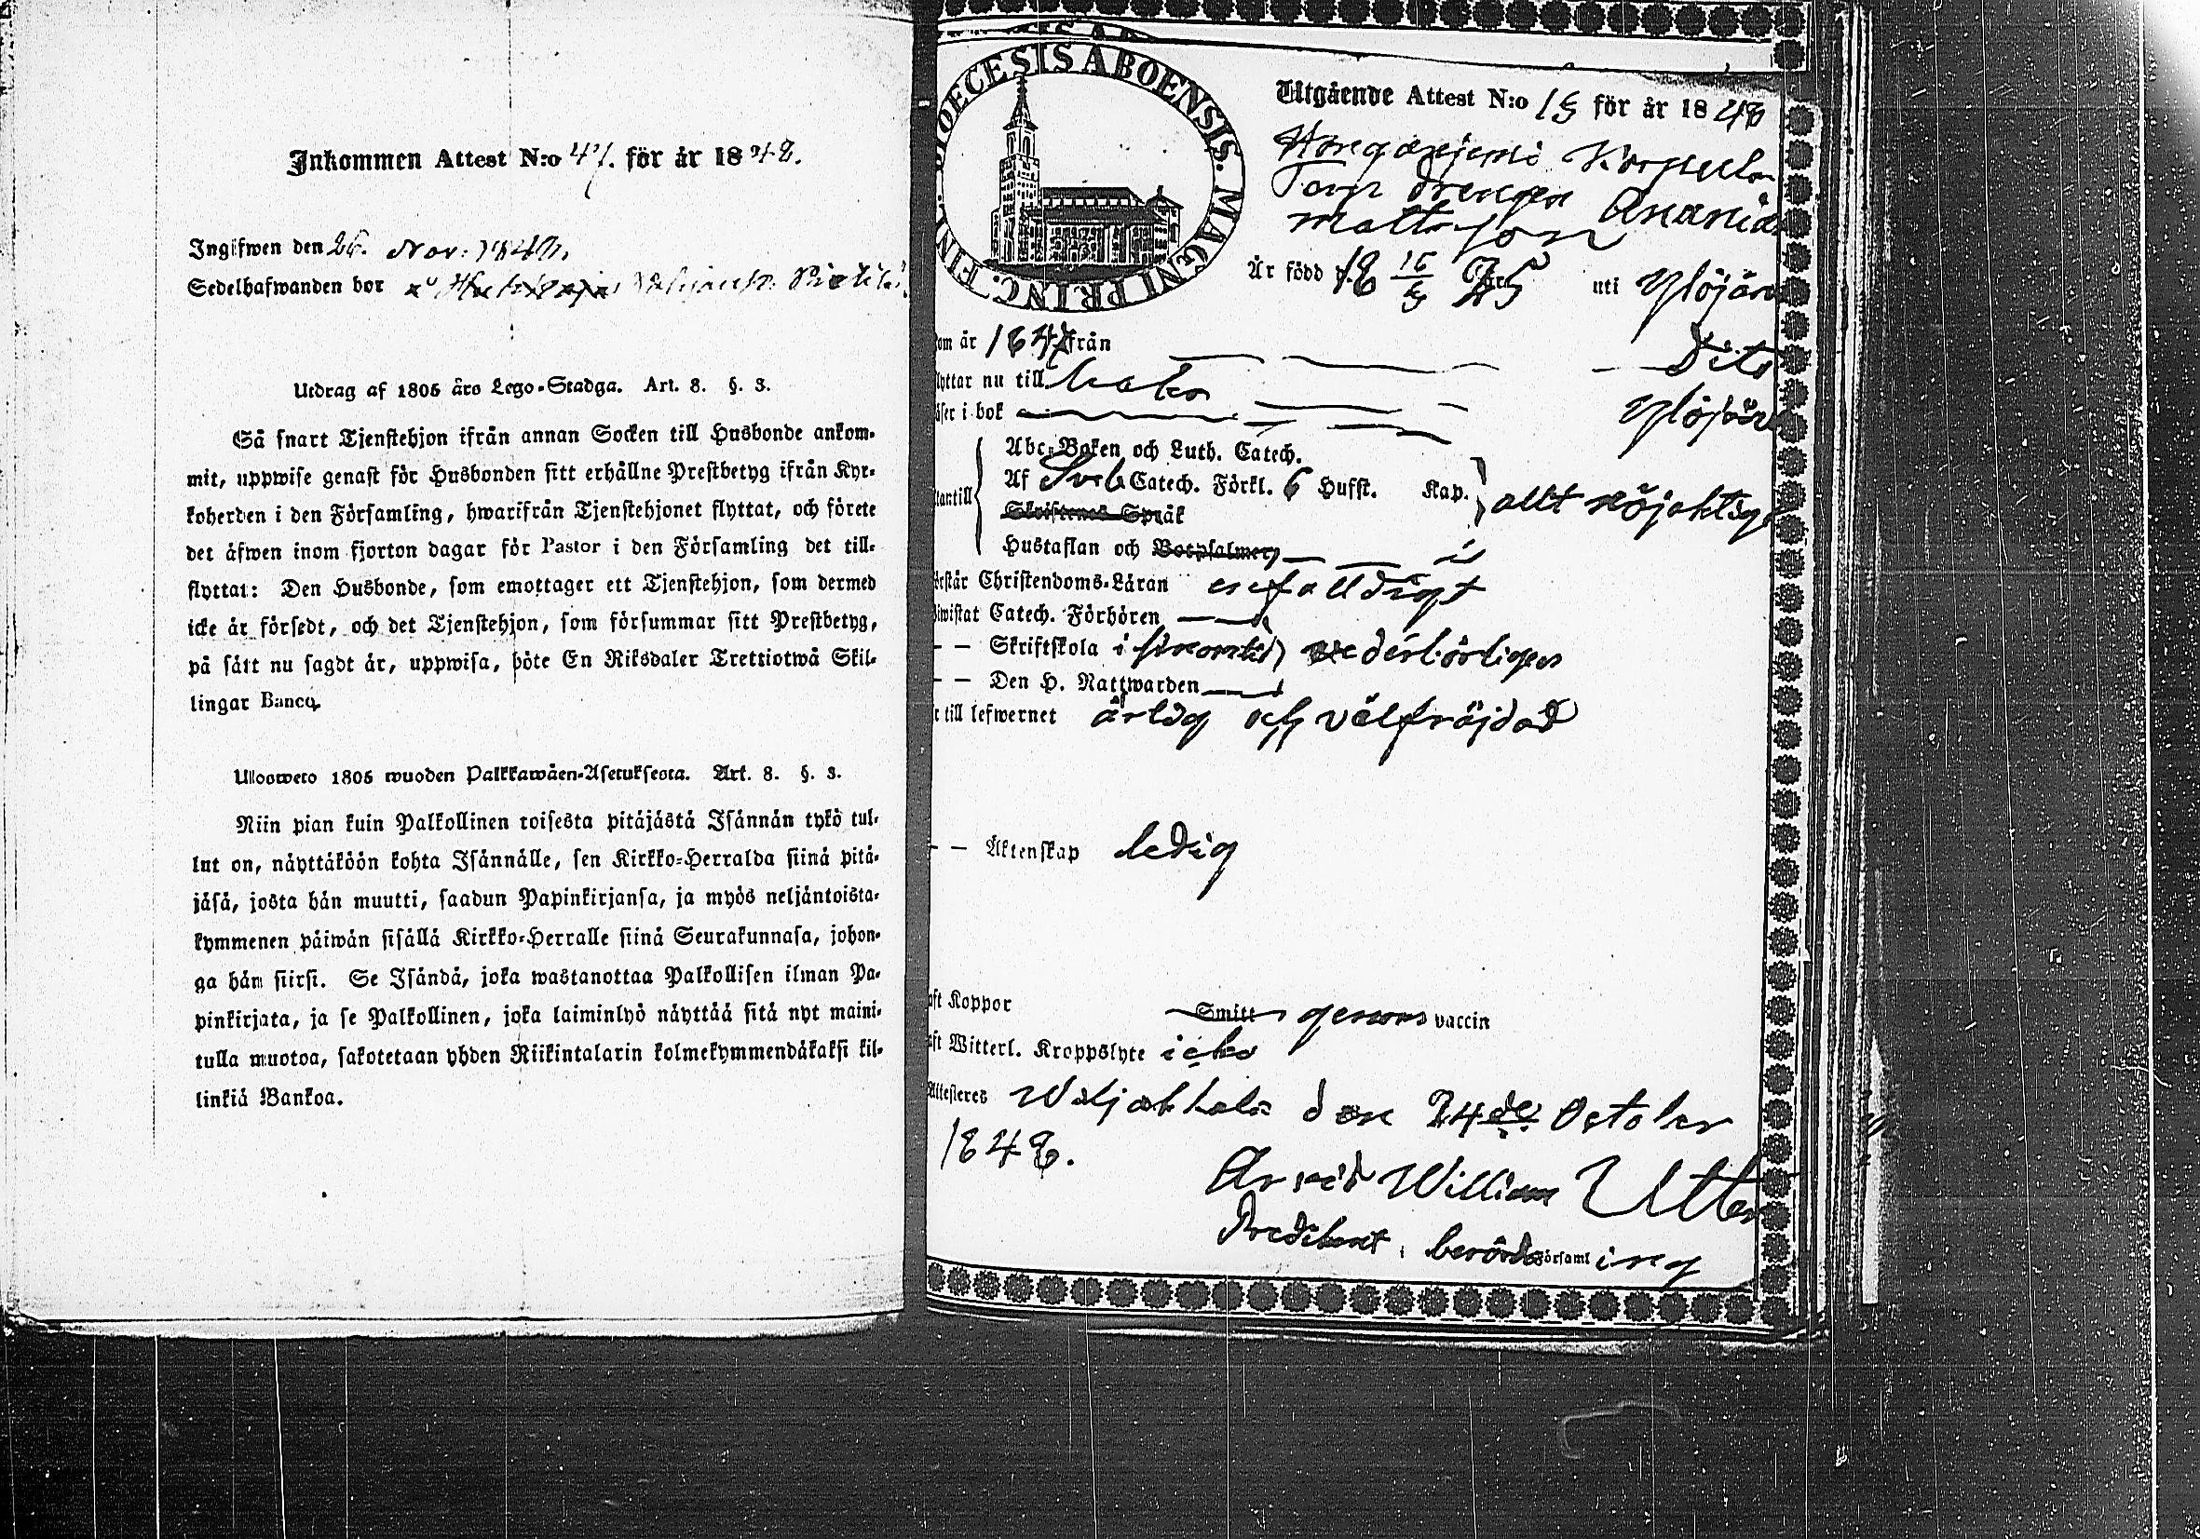 Inkommen Attest N:o 47. för år 1848.
Ingifwen den 26. Nov. 1848.
Sedelhafwanden bor
Utdrag af 1805 års Lego-Stadga. Art. 8. §. 3.
Så snart Tjenstehjon ifrån annan Socken till Husbonde ankom-
mit, uppwise genast för Husbonden sitt erhållne Prestbetyg ifrån Kyr-
koherden i den Församling, hwarifrån Tjenstehjonet flyttat, och förete
det äfwen inom fjorton dagar för Pastor i den Församling det till-
flyttat: Den Husbonde, som emottager ett Tjenstehjon, som dermed
icke är försedt, och det Tjenstehjon, som försummar sitt Prestbetyg,
på sätt nu sagdt är, uppwisa, böte En Riksdaler Trettiotwå Skil-
lingar Banco.
Ulosweto 1805 wuoden Palkkawäen-Asetuksesta. Art. 8. §. 3.
Niin pian kuin Palkollinen toisesta pitäjästä Isännän tykö tul-
lut on, näyttäköön kohta Isännälle, sen Kirkko-Herralda siinä pitä-
jäsä, josta hän muutti, saadun Papinkirjansa, ja myös neljäntoista-
kymmenen päiwän sisällä Kirkko-Herralle siinä Seurakunnasa, johon-
ga hän siirsi. Se Isändä, joka wastanottaa Palkollisen ilman Pa-
pinkirjata, ja se Palkollinen, joka laiminlyö näyttää sitä nyt maini-
tulla muotoa, sakotetaan yhden Riikintalarin kolmekymmendäkaksi kil-
linkiä Bankoa.
DIOECESIS ABOENSIS. MAGNI PRINC. FINL.
Utgående Attest N:o 15 för år 1848
Korpula
drengen Anania
Mattsson
Är född d. 18 15/5 25 uti Ylöjärv
om år 1847 från Dito
lyttar nu till Ylöjärv
äser i bok
Abc-Boken och Luth. Catech.
Af Sveb Catech. Förkl. 6 Hufst. Kap. allt nöjaktigt
Utantill Skriftenes Språk
Hustaflan och Botpsalmer
örstår Christendoms-Läran enfalldigt
biwistat Catech. Förhören
— — Skriftskola i vederbörligen
— — Den H. Nattwarden
r till lefwernet ärlig och välfräjdad
— — Äktenskap ledig
aft Koppor Smitt genom vaccin
aft Witterl. Kroppslyte icke
Attesteres Wiljakkala den 24de October
1848.
Arvid William Utter
Predikant i berörde Församling